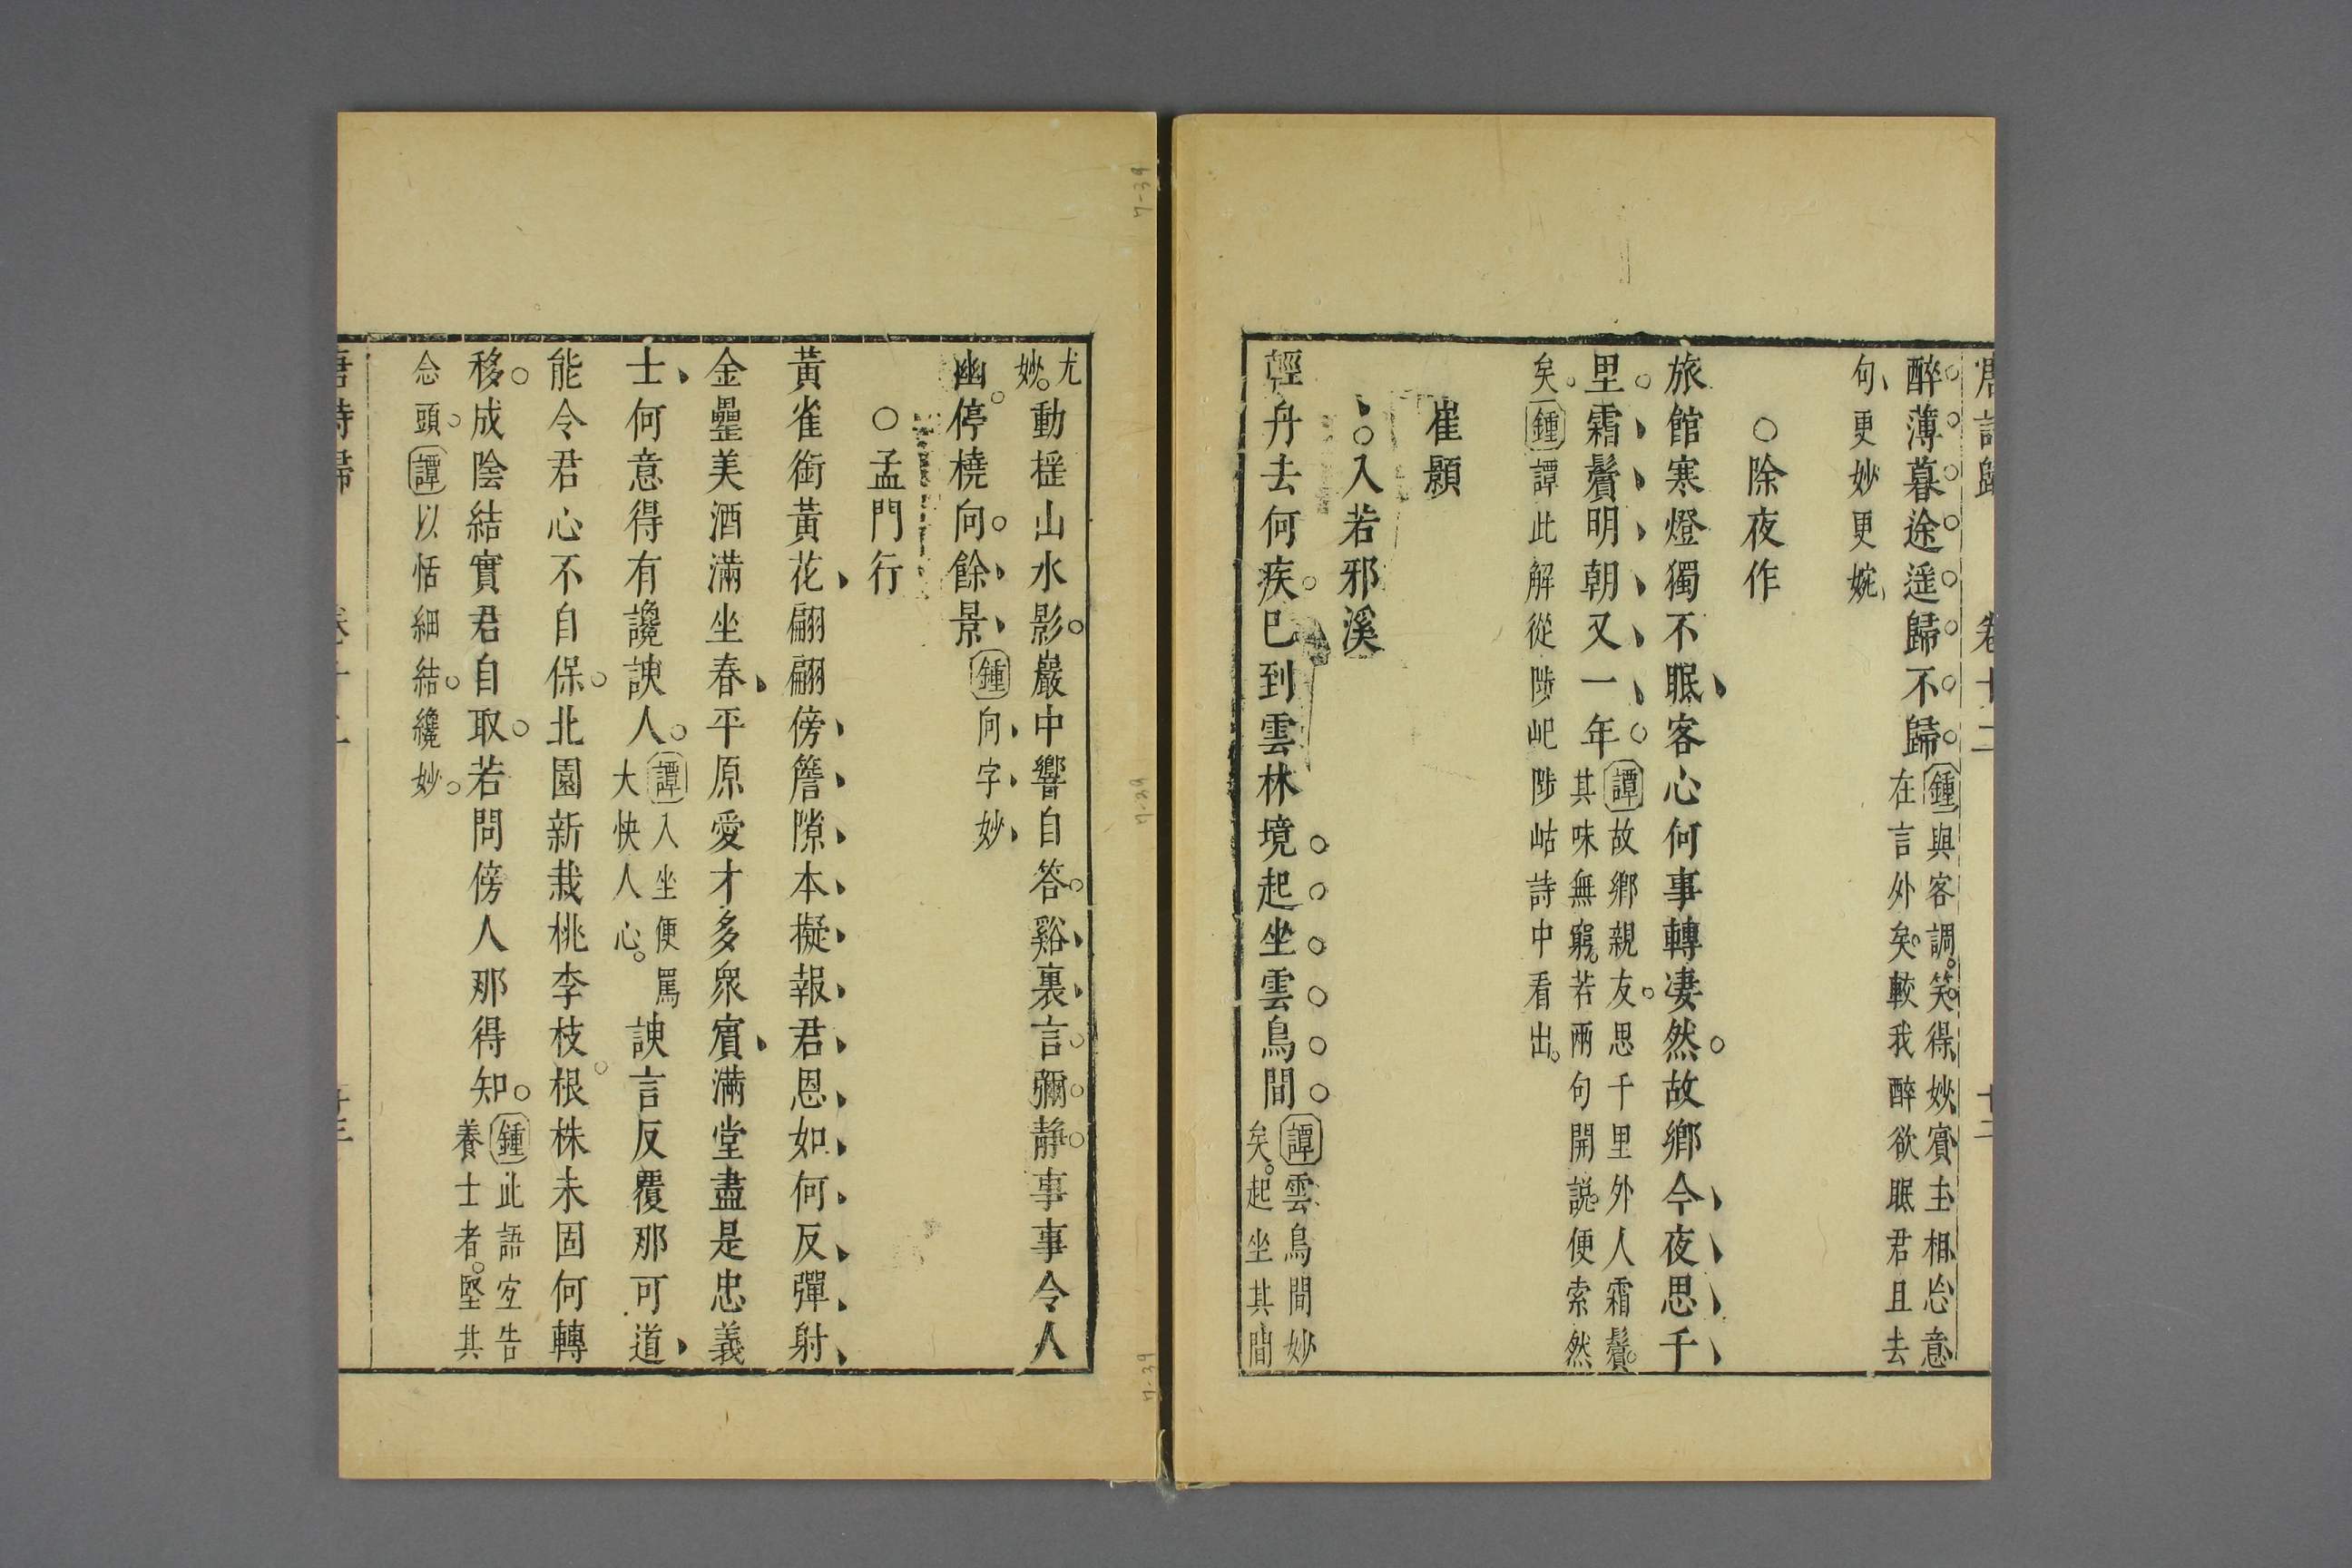 唐詩歸 卷十二 十二
醉薄暮途遥歸不歸鍾與客調笑得妙賓主相忘意
在言外矣較我醉欲眠君且去
句更妙更婉
○除夜作
旅館寒燈獨不眠客心何事轉凄然故鄉今夜思千
里霜鬢明朝又一年譚故鄉親友思千里外人霜鬢
其味無窮若兩句開説便索然
矣鍾譚此解從陟屺陟岵詩中看出
崔顥
○入若邪溪
輕舟去何疾已到雲林境起坐雲鳥間譚雲鳥間妙
矣起坐其間
尤
妙動揺山水影巖中響自答谿裏言彌静事事令人
幽停橈向餘景鍾向字妙
○孟門行
黃雀銜黃花翩翩傍簷隙本擬報君恩如何反彈射
金罍美酒滿坐春平原愛才多衆賓滿堂盡是忠義
士何意得有讒諛人譚入坐便罵
大快人心諛言反覆那可道
能令君心不自保北園新栽桃李枝根株未固何轉
移成陰結實君自取若問傍人那得知鍾此語宜告
養士者堅其
念頭譚以恬細結纔妙
唐詩歸 卷十二 十三